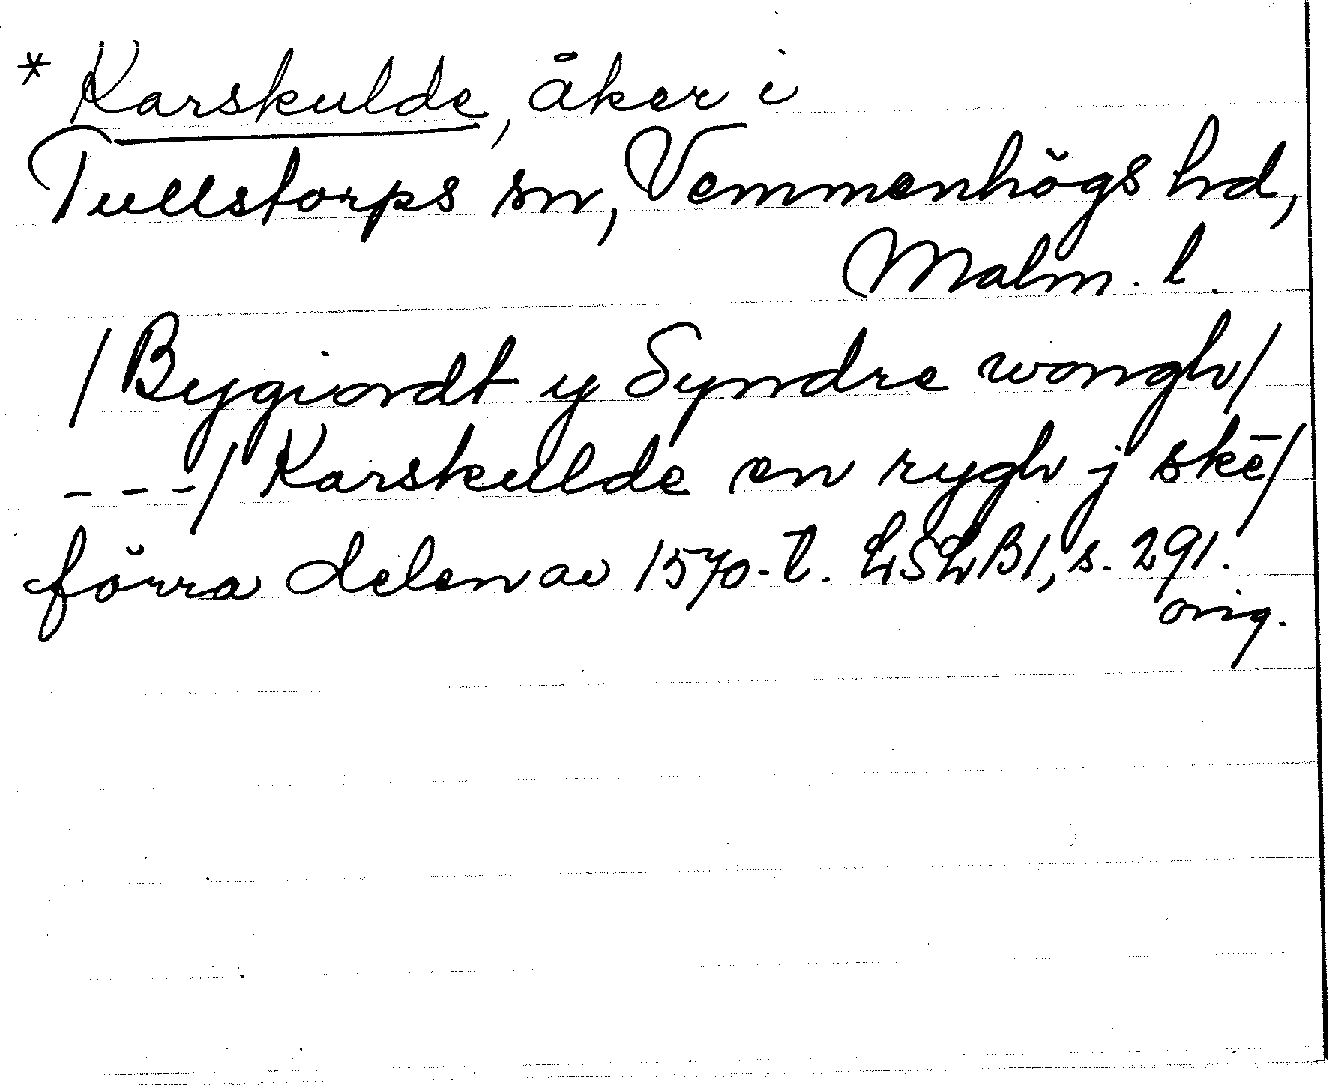 * Karskulde, åker i
Tullstorps sn, Vemmenhögs hd,
Malm. l.
/Bygiordt y Syndre wongh/
---/Karskulde en rygh j skē/
förra delen av 1570-t. LSLB1, s. 291.
orig.